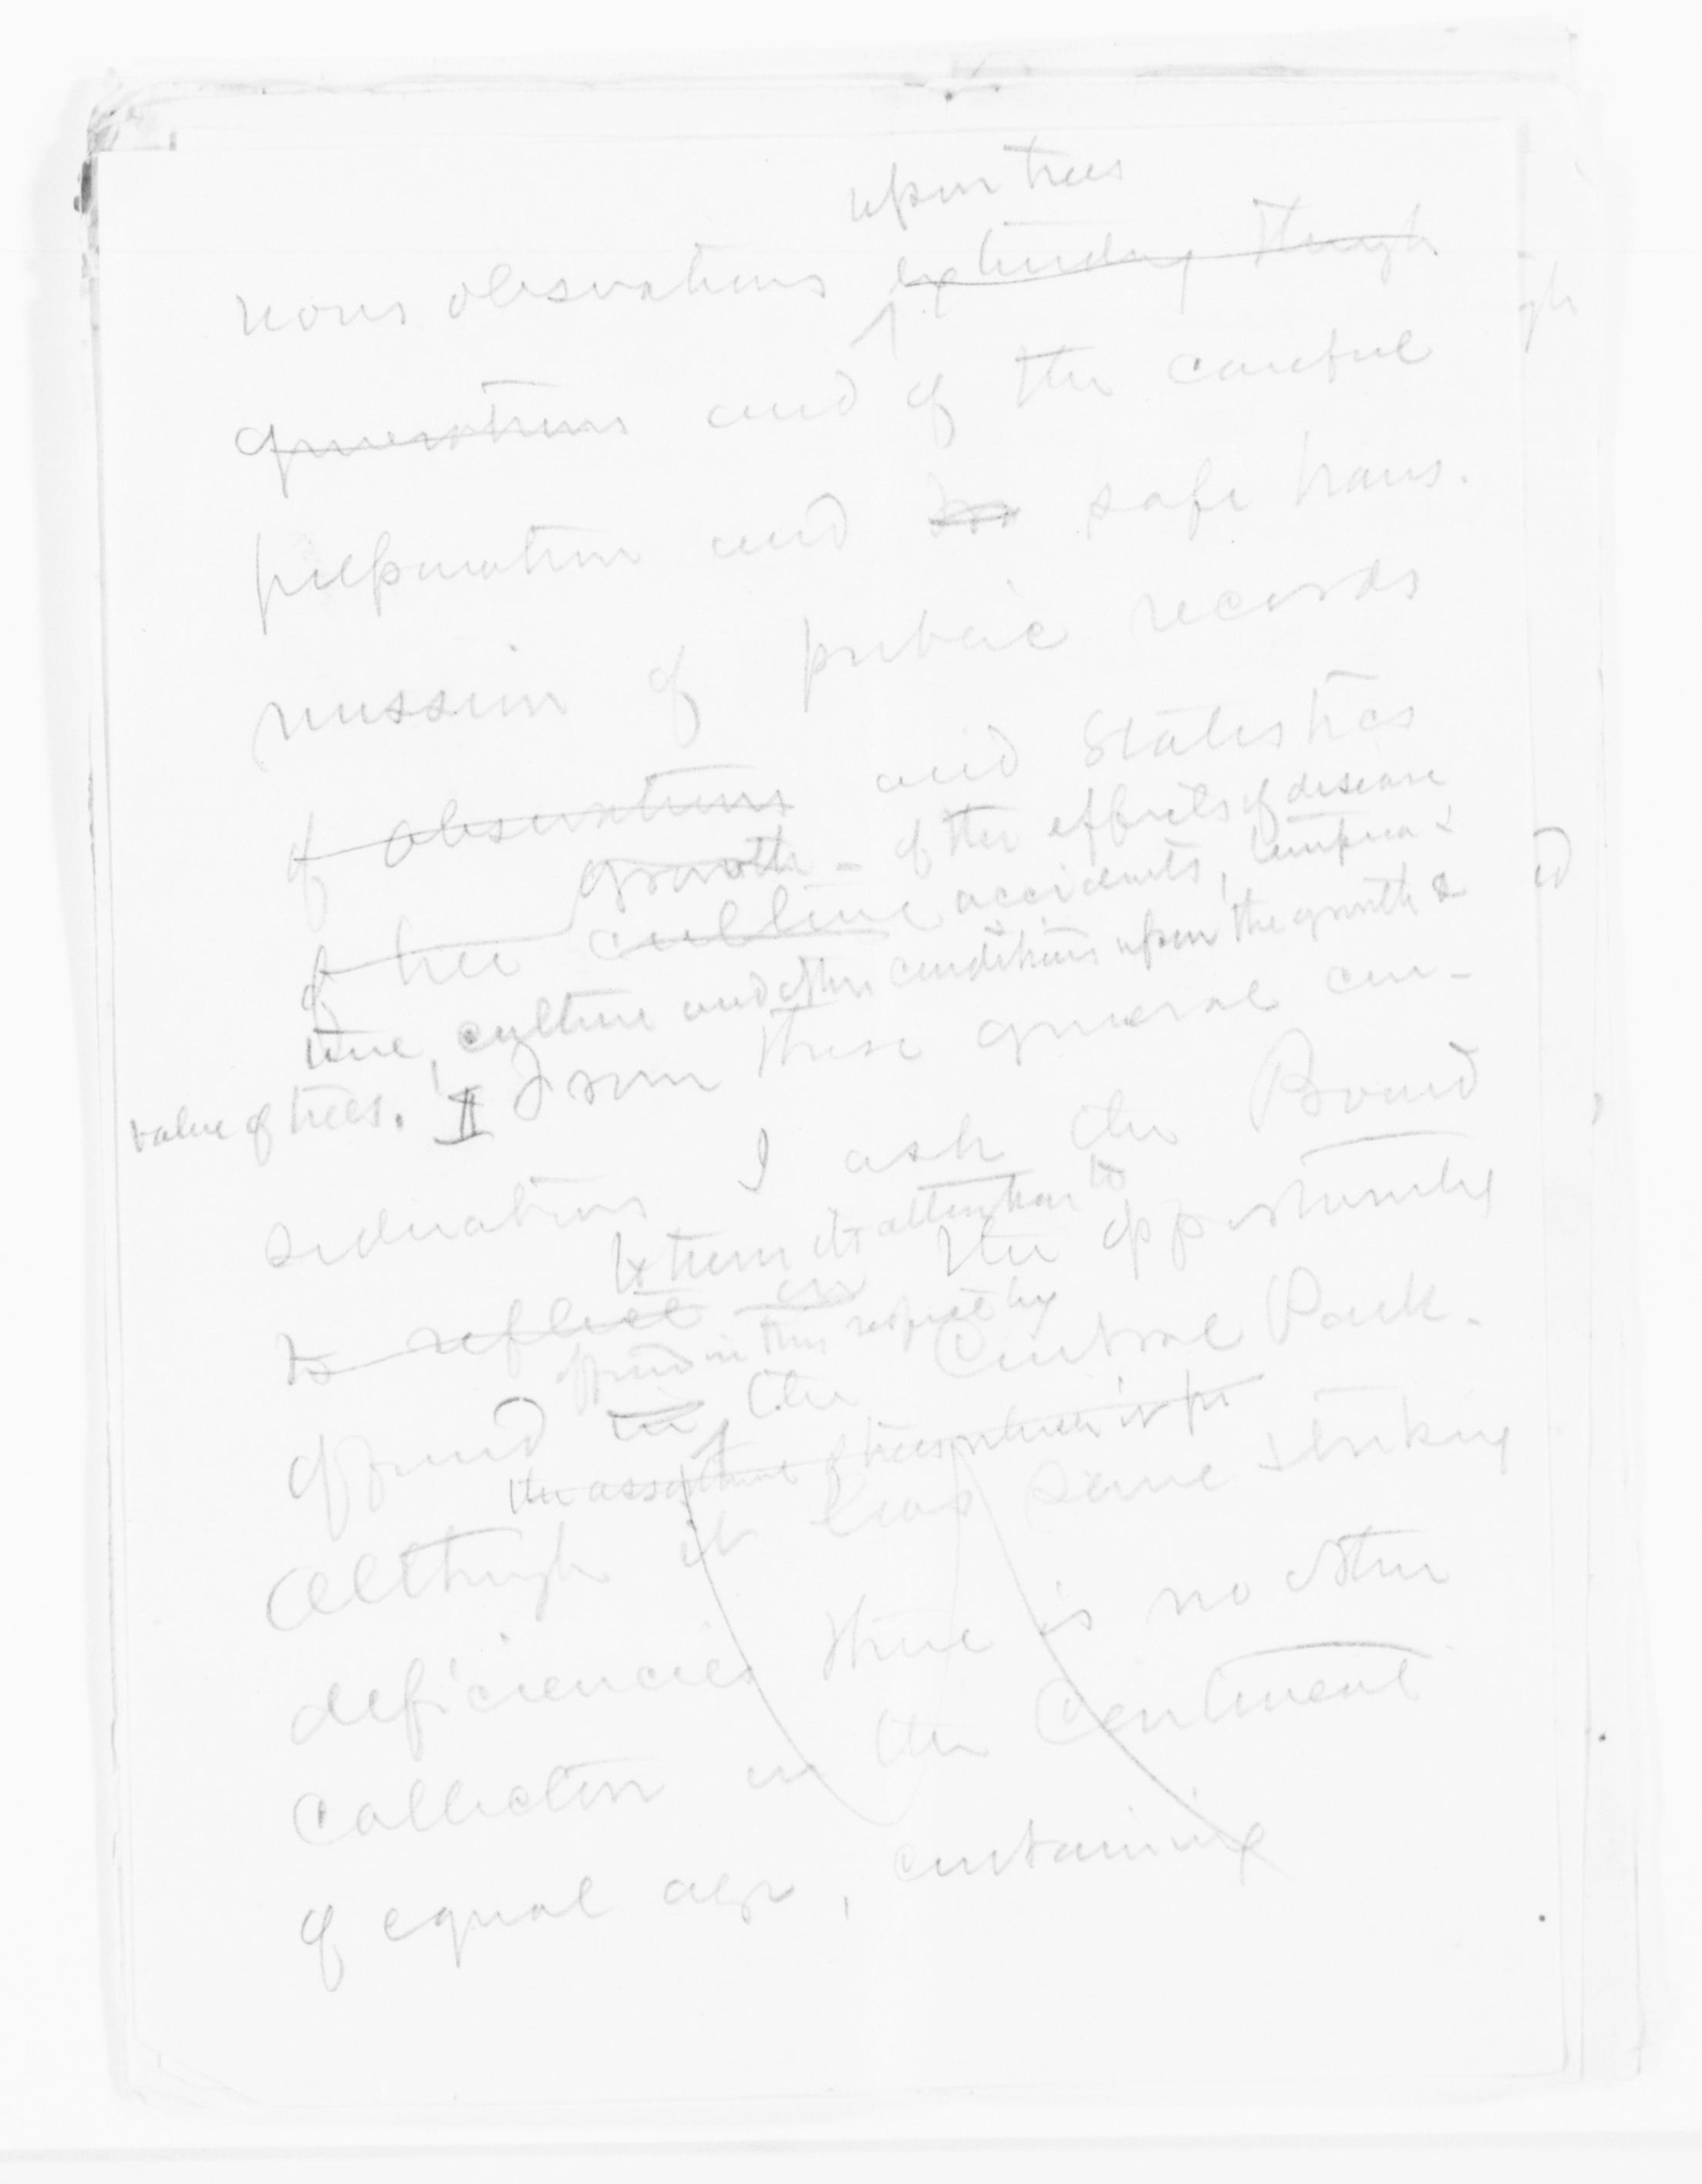 upon trees
nous observations extending though
generations and of the careful
preparation and safe trans.
mission of public records
of observations and Statistics
growth - of the effects of disease
of tree culture accidents, tempera-
ture, culture and other conditions upon the growth &
value of trees. From these general con-
siderations I ask the Board
to turn its attention to
to reflect on the opportunity
offered in this respect by
offered in the Central Park.
the assortment of trees which is for
Although it has some striking
deficiencies there is no other
Collection in the Continent
of equal age, containing